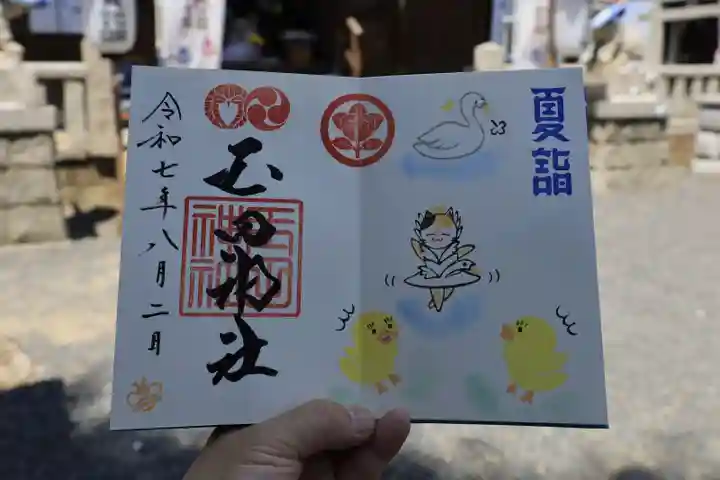 夏詣
玉田神社
令和七年八月二日